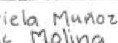 riela Muñoz
Molina